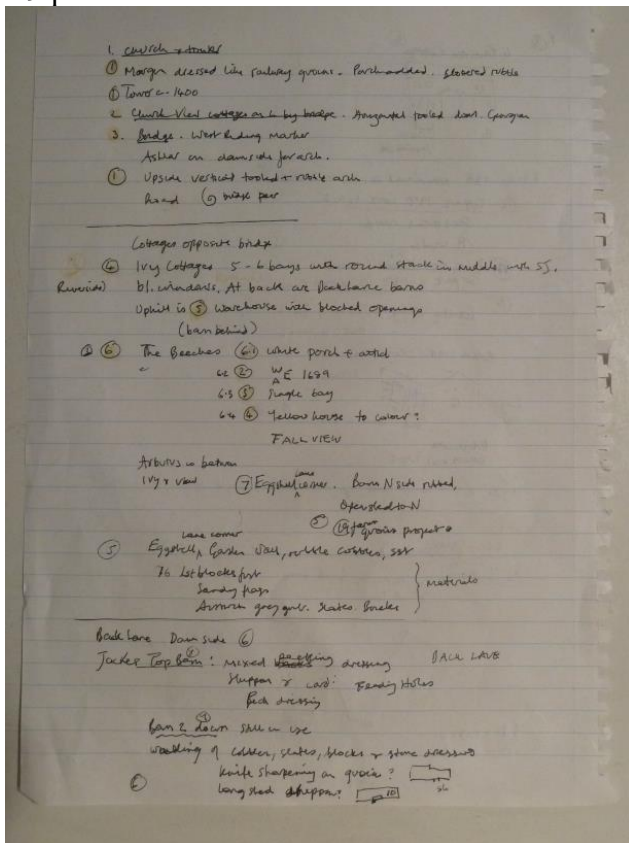 1. Church + tower
① Margin dressed like railway quoins. Porch added. rubble
① Tower c. 1400
2. Church View cottages on L by bridge. Horizontal tooled door. Georgian
3. Bridge. West Riding Marker
Ashlar on downside for arch.
① Upside vertical tooled + rubble arch
Road bridge
Cottages opposite bridge
④ Ivy Cottages 5-6 bays with round stack in middle, with
Riverside) bl. windows. At back are Back Lane barns
Uphill is ⑤ Warehouse with blocked openings
(barn behind)
① ⑥ The Beeches 6.1 white porch +
" 6.2 ② W E 1689
A
6.3 ③ Single bay
6.4 ④ Yellow house to colour?
FALL VIEW
Arbutus in between
Ivy + view ⑦ Eggshell Lane corner. Barn N side rubbed,
Open shed to N
quoins project
Lane corner
⑤ Eggshell Garden wall, rubble cobbles, sst
Lst blocks first
Sandy flags
grey Slates. Bricks
Materials
Back Lane Down side ⑥
Top Barn: mixed dressing BACK LANE
Shippon + Feeding Holes
Peck dressing
Barn 2 down still in use
of cobbles, slates, blocks + stone dressed
knife sharpening on quoins?
long shed shippon? 10